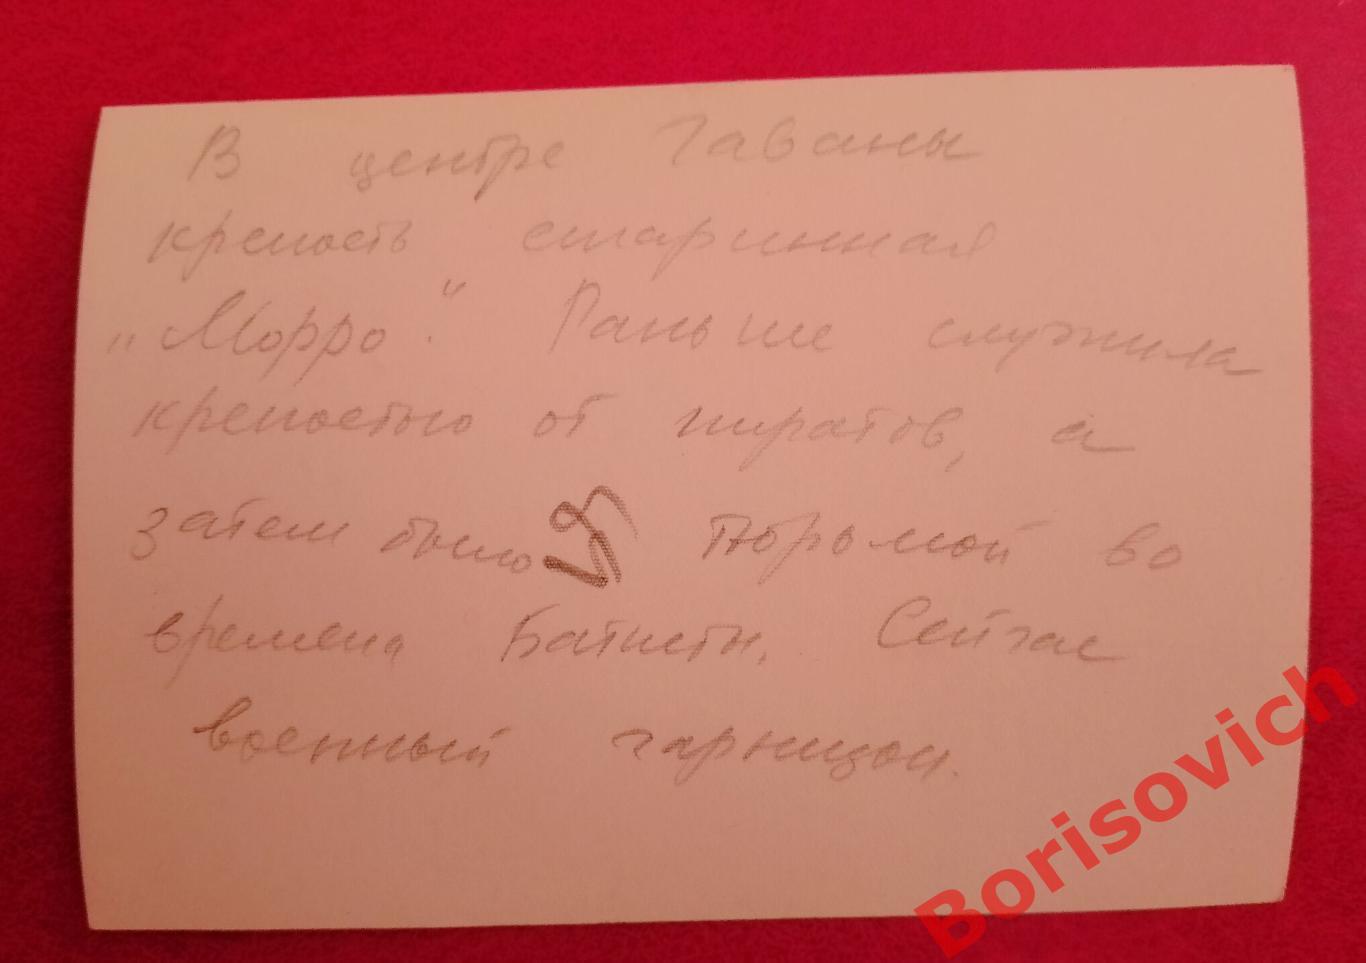 В центре Гаваны
крепость старинная
„Морро." Раньше служила
крепостью от пиратов, а
затем было тюрьмой во
времена Батисты. Сейчас
военный гарнизон.
Borisovich